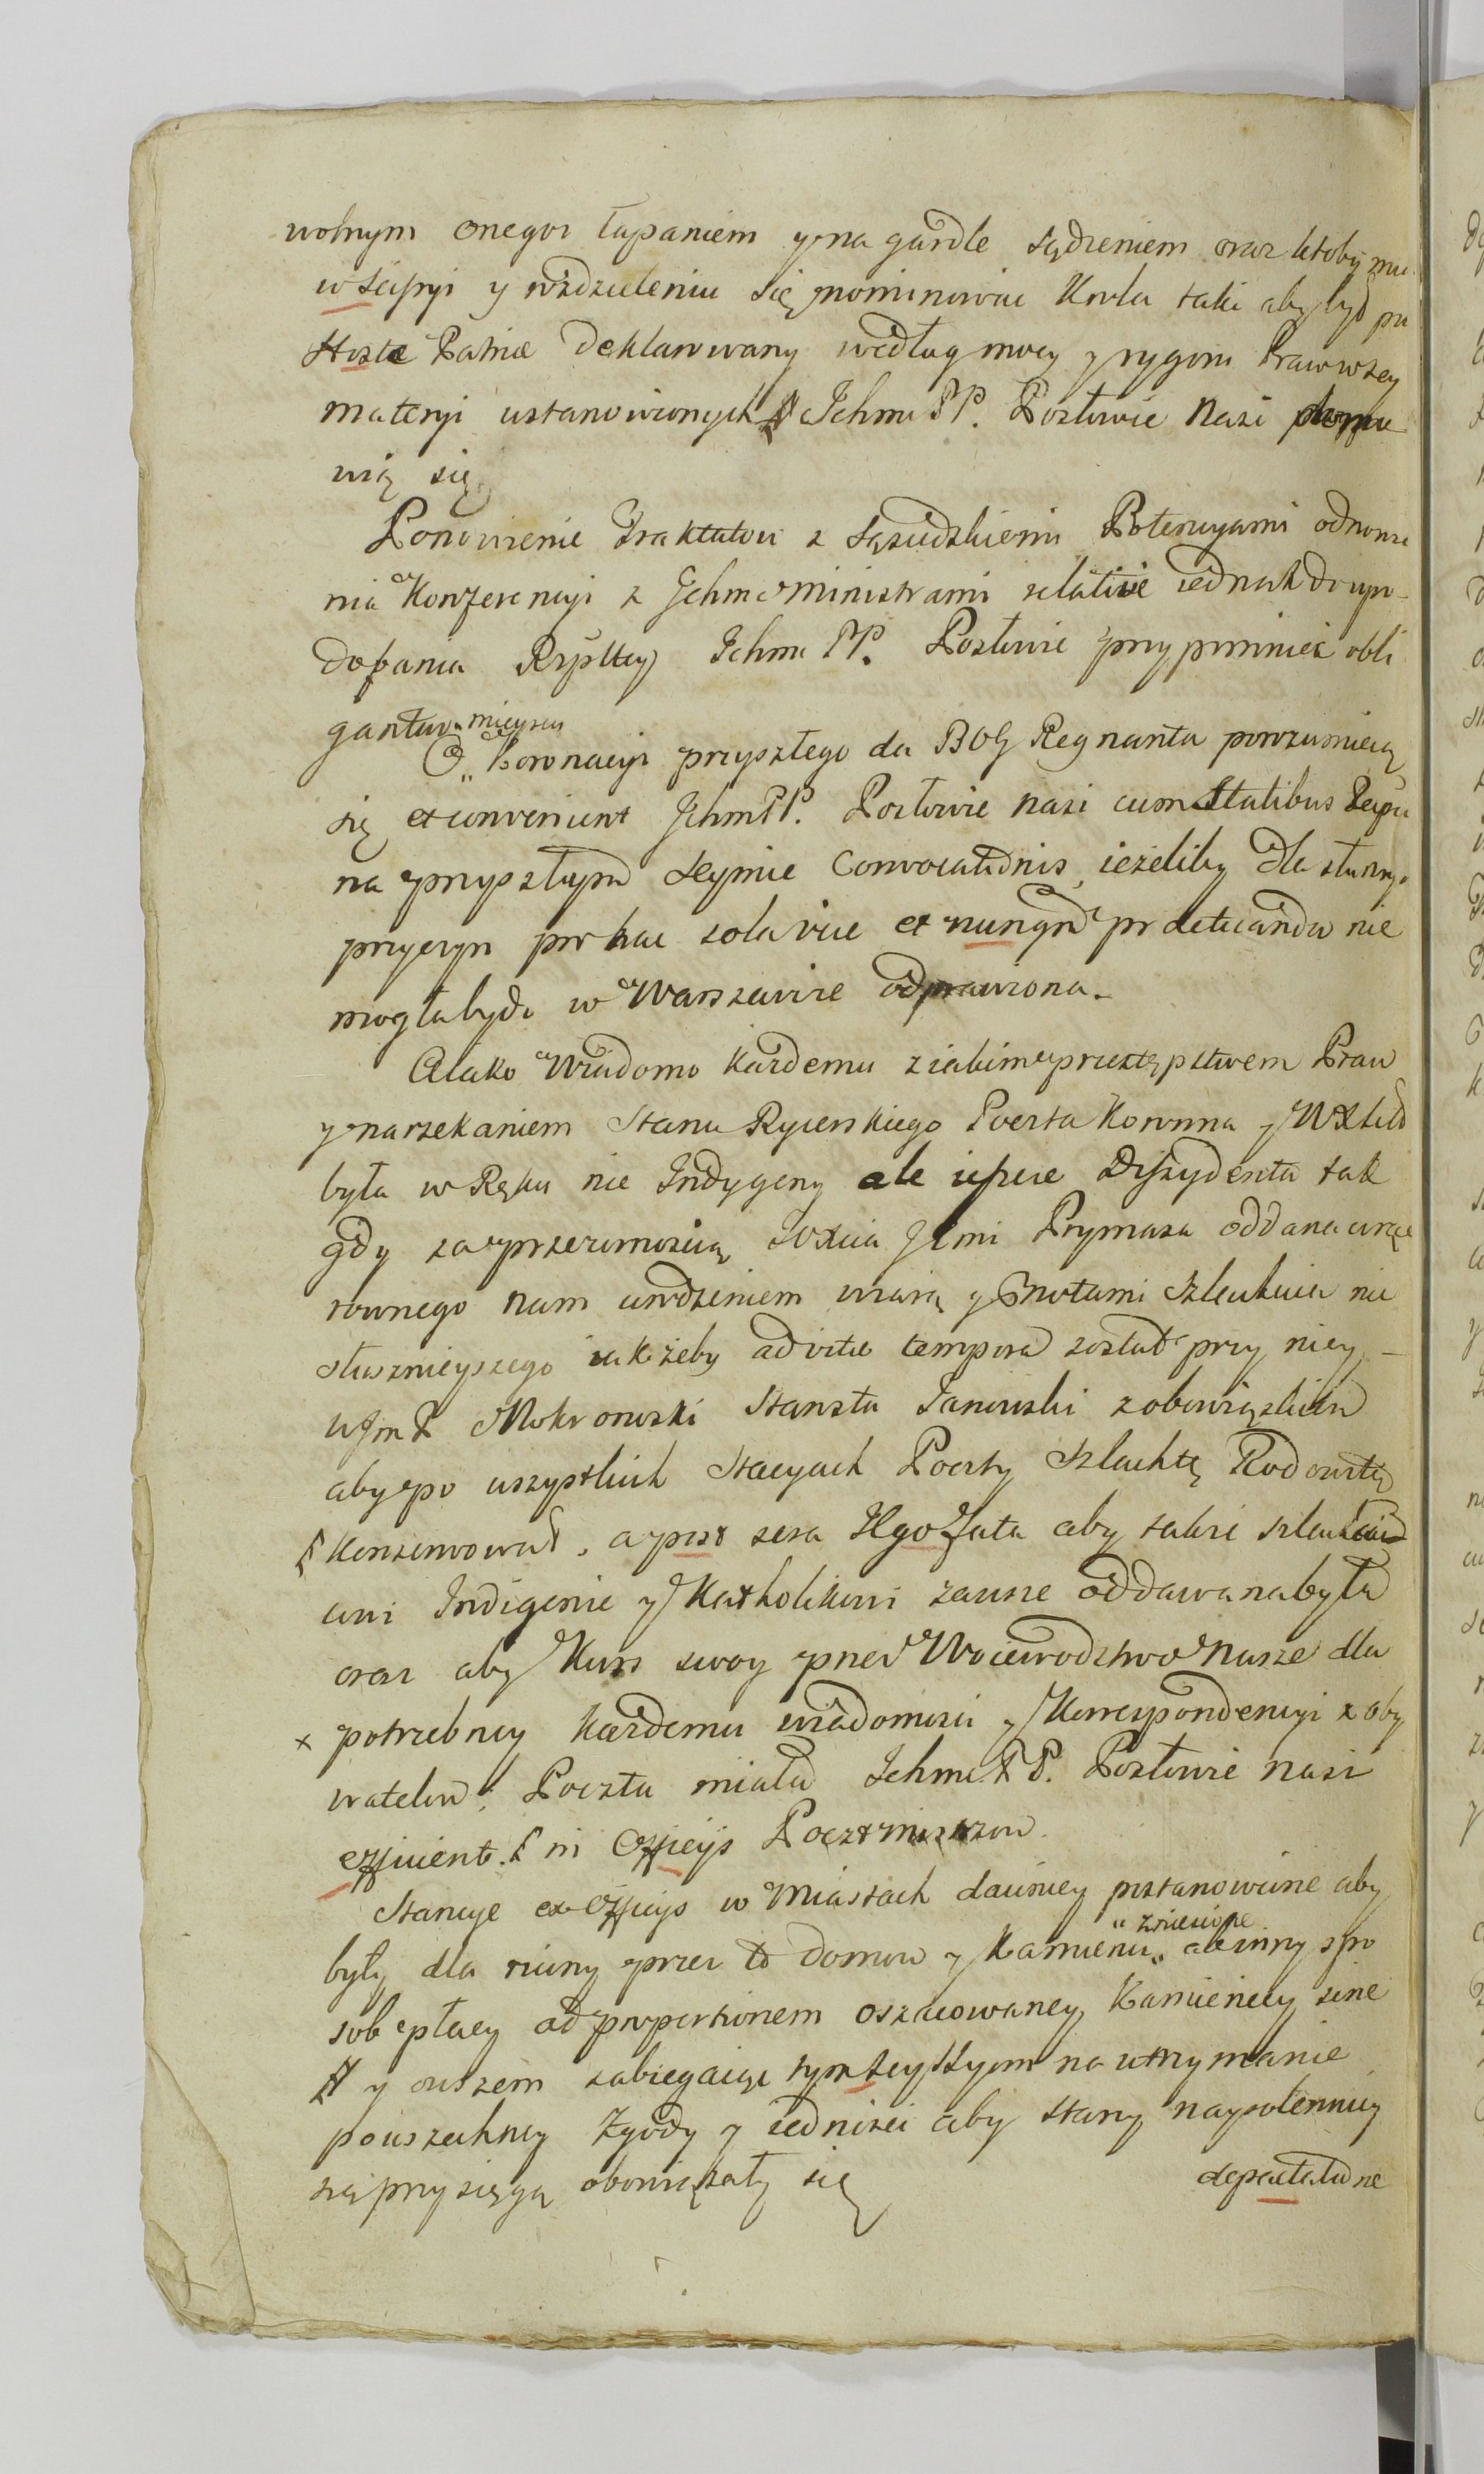 wolnym onegoż łapaniem y na gardle sądzeniem oraz ktoby mu
w scissyi y rozdzieleniu się nominować Krola taki aby był pu
Hoste Patriæ deklarowany według mocy y rygoru Praw w tey
materyi ustanowionych Ichmc PP. Posłowie nasi domu
wią się
Ponowienie Traktatow z sąsiedzkiemi Potencyami odnowie
nia Konferencyi z Ichmc Ministrami relative iednak do upo-
dobania Rzpltey Ichmc PP. Posłowie przypomniec obli
gantur
O mieyscu Koronacyi przyszłego da BOG Regnanta porozumieią
się et convenient Ichm PP. Posłowie nasi cum Statibus Reipu
na przyszłym Seymie Convocationis, ieżeliby dla słuszny
przyczyn pro hac sola vice et nunqm pr deducenda nie
mogła bydź w Warszawie odprawiona.
A iako wiadomo każdemu z iakim przestępstwem Praw
y narzekaniem Stanu Rycerskiego Poczta Koronna y WXLitt
była w Ręku nie Indygeny ale ieszcze Dyssydenta tak
gdy za przezornością JOXcia Jmci Prymasa oddana w ręce
rownego nam urodzeniem wiarą y cnotami Szlachcica nic
słusznieyszego iak żeby ad vitæ tempora został przy niey
WJmP Mokronoski Starosta Janowski z obowiązkiem
aby po wszystkich stacyach Poczty Szlachtę Rodowitą
konserwował, a post sera Ilgo fata aby takze szlachcic
owi Indigenie y Katholikowi zawsze oddawana była
oraz aby Kurs swoy przez Woiewodztwo Nasze dla
x potrzebney każdemu wiadomości y Korrespondencyi x oby
watelow Poczta miała Ichmc PP. Posłowie nasi
efficient. ni Officijs Poczt mistrzow
Stancye ex Officijs w Miastach dawniey postanowione aby
były dla ruiny przez to domow y Kamienic „zniesione ale inny spo
sob płacy ad proportionem oszacowaney Kamienicy sine
# y owszem zabiegaiąc tym Scyssyom na utrzymanie
powszechney zgody y iedności aby Stany naysolenniey
się przysięgą obowiązały się
depactatione